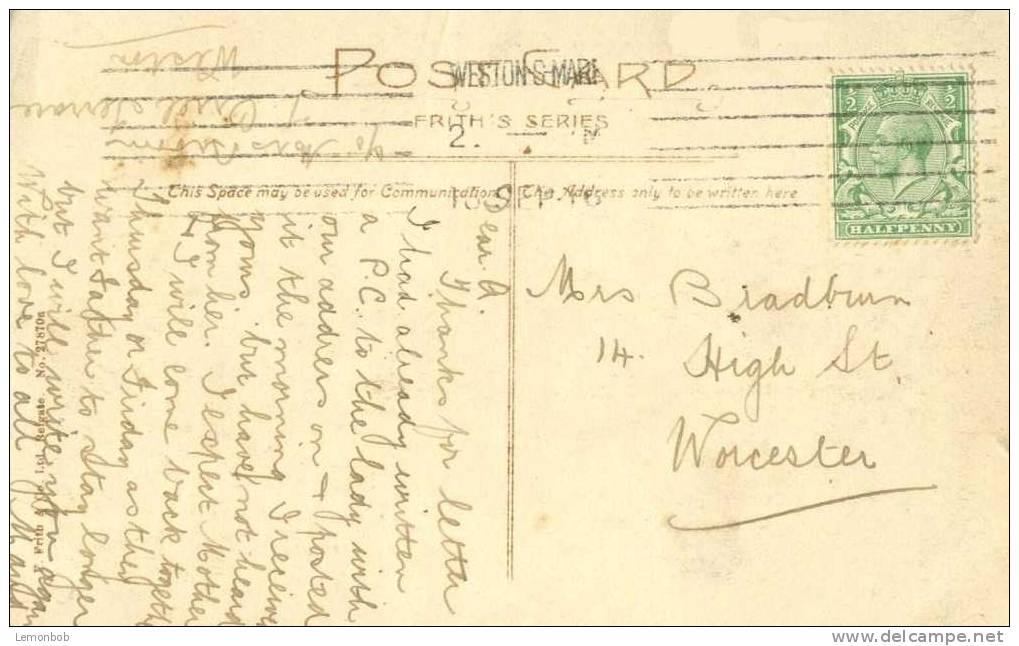 POST CARD
WESTON S MARE
FRITH'S SERIES
2.
13 SP
This Space may be used for Communication
The Address only to be written here
HALFPENNY
Mrs Bradburn
14. High St
Worcester
Weston
Terrace
c/o Mrs
Dear A.
Thanks for letter
I had already written
a P.C. to the lady with
our address on & posted
it the morning I receive
yours, but have not heard
from her. I expect Mother
& I will come back togeth
Thursday or Friday as they
want Father to stay longer
but I will write you again
With love to all
F. Frith & Co. Ltd. Reigate. No. 27870a
Lemonbob
delcampe.net